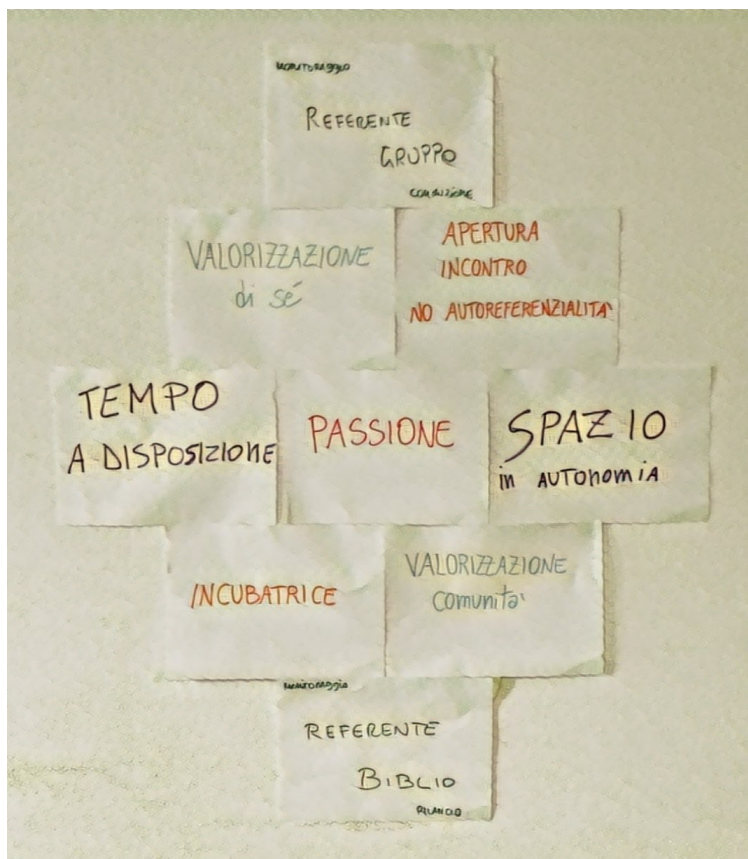 MONITORAGGIO
REFERENTE
GRUPPO
CONDUZIONE
VALORIZZAZIONE
di sé
APERTURA
INCONTRO
NO AUTOREFERENZIALITA'
TEMPO
A DISPOSIZIONE
PASSIONE
SPAZIO
in AUTONOMIA
INCUBATRICE
VALORIZZAZIONE
Comunita'
MONITORAGGIO
REFERENTE
BIBLIO
RILANCIO